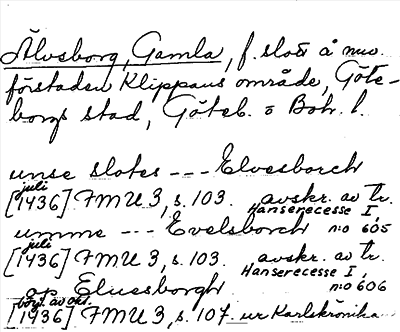 Älvsborg, Gamla, f. slott å nuv.
förstaden Klippans område, Göte-
borgs stad, Göteb. o Boh. l.
unse slotes --- Elvesborch
[juli 1436] FMU 3, s. 103. avskr. av tr.
Hanserecesse I,
umme --- Evelsborch n:o 605
[juli 1436] FMU 3, s. 103. avskr. av tr.
Hanserecesse I,
op Eluesborgh n:o 606
[börj. av okt. 1436] FMU 3, s. 107. ur Karlskrönika